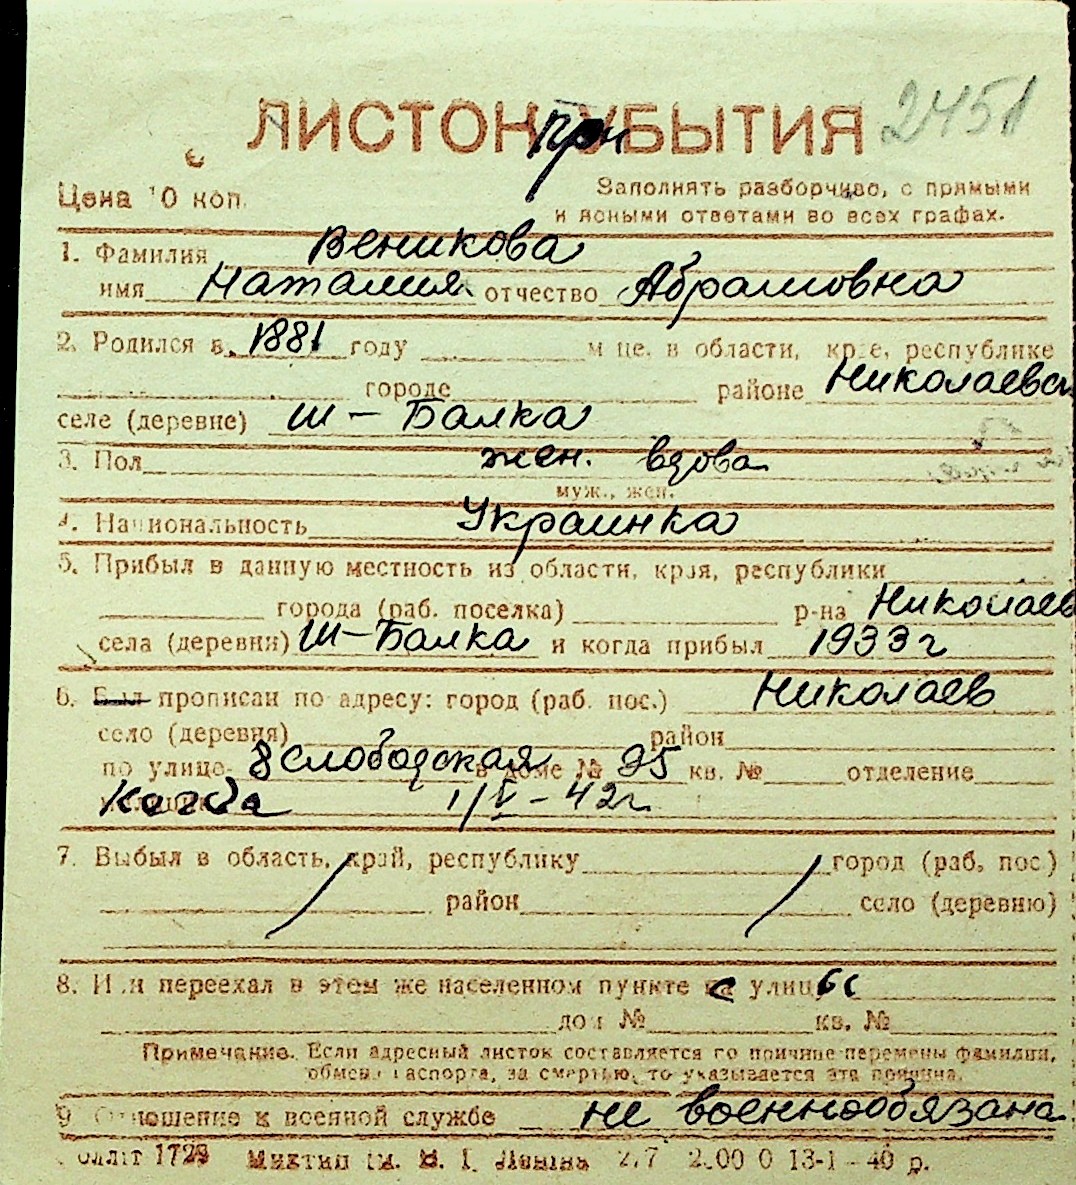 ЛИСТОК при УБЫТИЯ 2451
Цена 10 коп. Заполнять разборчиво, с прямыми
и ясными ответами во всех графах.
1. Фамилия Веникова
имя Наталия отчество Абрамовна
2. Родился в 1881 году м-це, в области, крае, республике
городе районе Николаевск
селе (деревне) Ш-Балка
3. Пол жен. вдова
муж., жен.
4. Национальность Украинка
5. Прибыл в данную местность из области, края, республики
города (раб. поселка) р-на Николаев
села (деревни) Ш-Балка и когда прибыл 1933 г
6. Был прописан по адресу: город (раб. пос.) Николаев
село (деревня) район
по улице 8 Слободская в доме № 95 кв. № отделение
милиции Когда 1/V-42 г.
7. Выбыл в область, край, республику город (раб. пос.)
район село (деревню)
8. Или переехал в этом же населенном пункте с улицы
дом № кв. №
Примечание. Если адресный листок составляется по причине перемены фамилии,
обмена паспорта, за смертью, то указывается эта причина.
9 Отношение к военной службе не военнообязана
1728 им. В. И. Ленина 13-1-40 р.